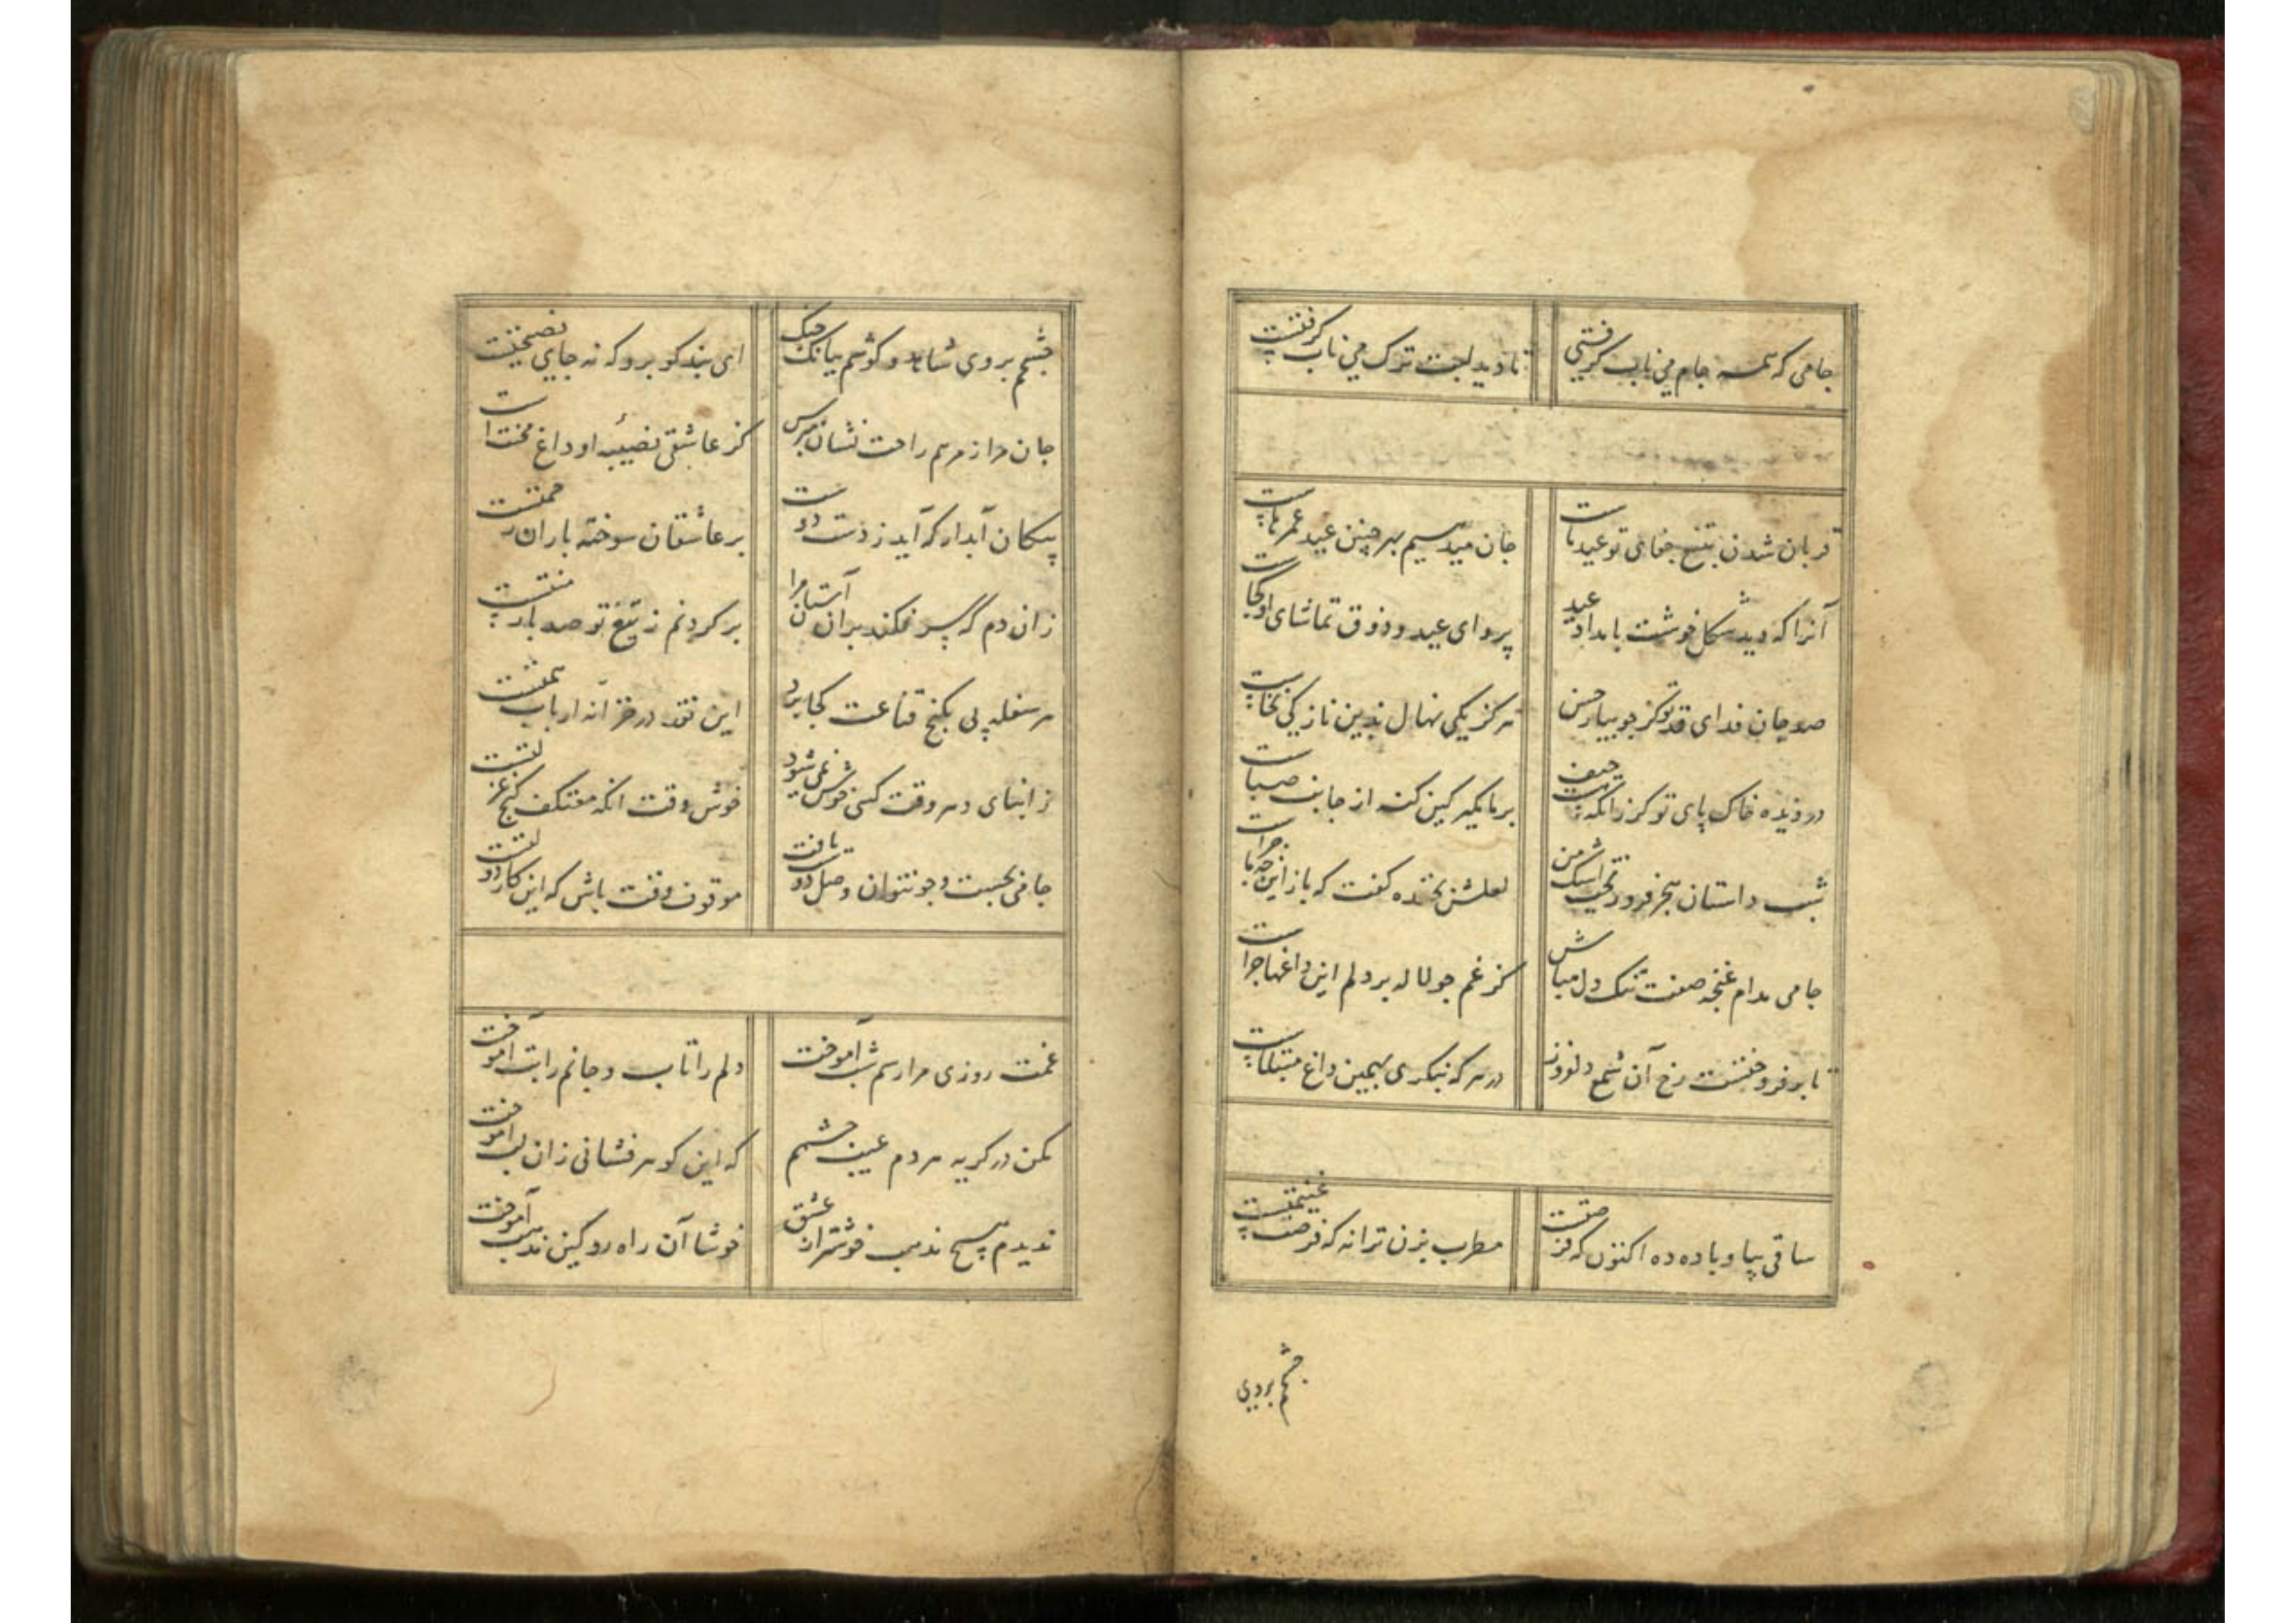 جامی که همه جام می ناب گرفتی تا دید لبت ترک می ناب گرفتست
قربان شدن بتیغ جفای تو عید ماست جان میدهیم بهر چنین عید عمرهاست
آنرا که دید شکل خوشت بامداد عید پروای عید و ذوق تماشای او کجاست
صد جان فدای قد تو کز جویبار حسن هرگز یکی نهال بدین نازکی نخاست
دزدیده خاک پای تو گر زانکه نیست حیف بر ما مگیر کین کنه از جانب صباست
شب داستان هجر فرو ریخت اشک من لعلش بخنده گفت که باز این چه ماجراست
جامی مدام غنچه صفت تنک دل مباش کز غم چو لاله بر دلم این داغها چراست
تا برفروختست رخ آن شمع دلفروز در هر که بنگری بهمین داغ مبتلاست
ساقی بیا و باده ده اکنون که فرصتست مطرب بزن ترانه که فرصت غنیمتست
چشمم بروی
چشمم بروی شاهد و گوشم ببانک چنگ ای پندگو برو که نه جای نصیحتست
جان مرا ز مرهم راحت نشان مپرس کز عاشقی نصیب او داغ محنت است
پیکان آبدار که آید ز دست دوست بر عاشقان سوخته باران رحمتست
زان دم که سر فکند بران آستان مرا بر گردنم ز تیغ تو صد بار منتست
هر سفله پی بکنج قناعت کجا برد این نقد در خزانه ارباب همتست
ز ابنای دهر وقت کسی خوش نمی‌شود خوش وقت انکه معتکف کنج عزلتست
جامی بجست و جو نتوان وصل دوست یافت موقوف وقت باش که این کار دولتست
غمت روزی مرا رسم شب آموخت دلم را تاب و جانم را تب آموخت
مکن در گریه مردم عیب چشمم که این گوهر فشانی زان لب آموخت
ندیدم هیچ مذهب خوشتر از عشق خوشا آن راه رو کین مذهب آموخت